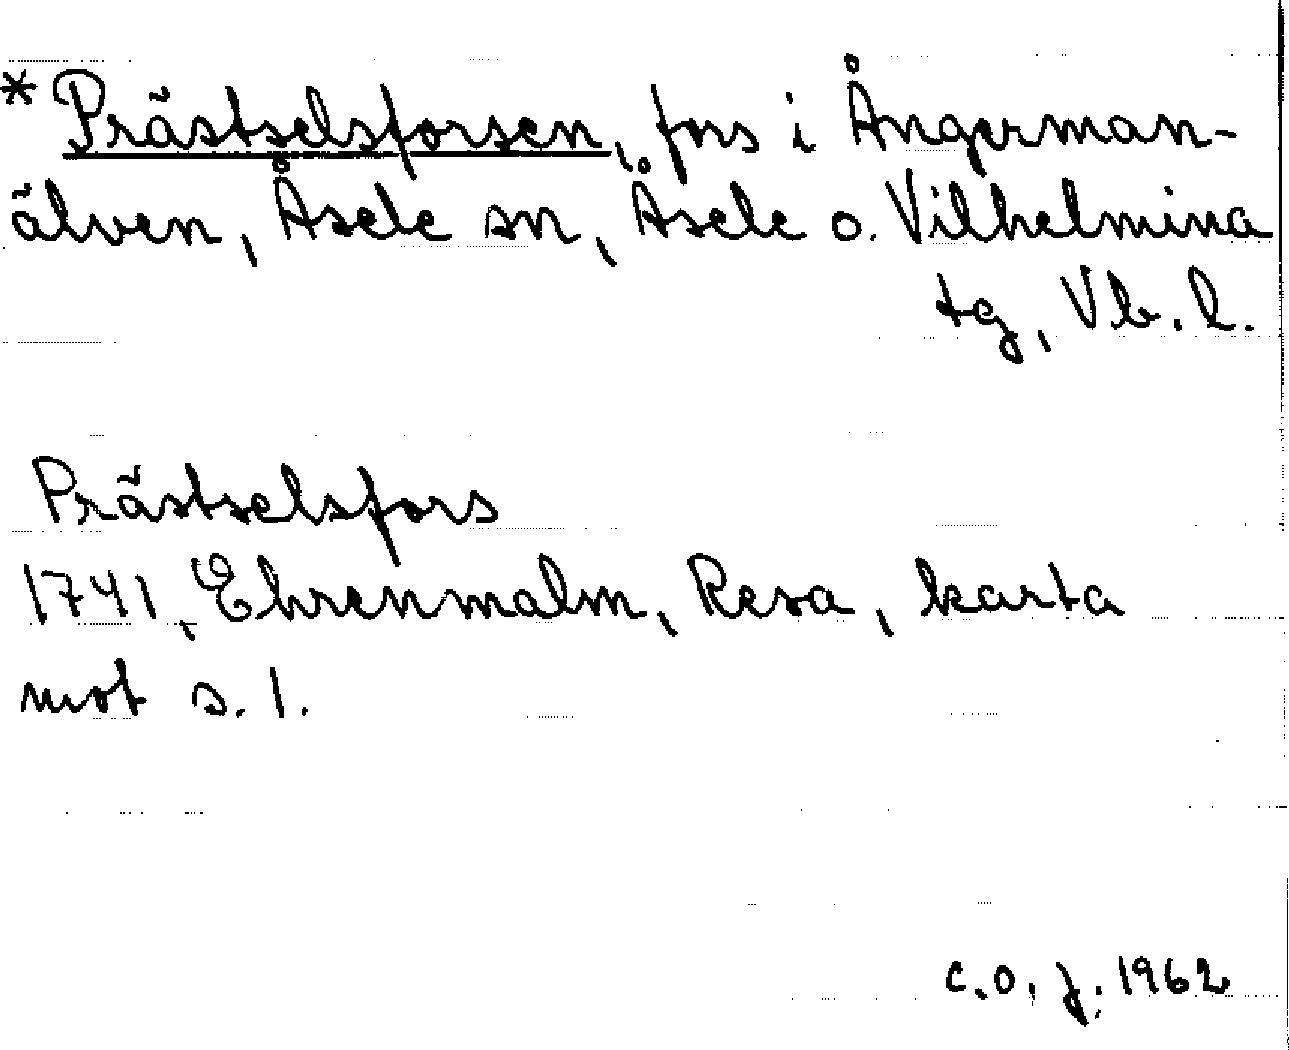 * Prästselsforsen, fors i Ångerman-
älven, Åsele sn, Åsele o. Vilhelmina
tg, Vb. l.
Prästselsfors
1741, Ehrenmalm, Resa, karta
mot s. 1.
C.O. J. 1962